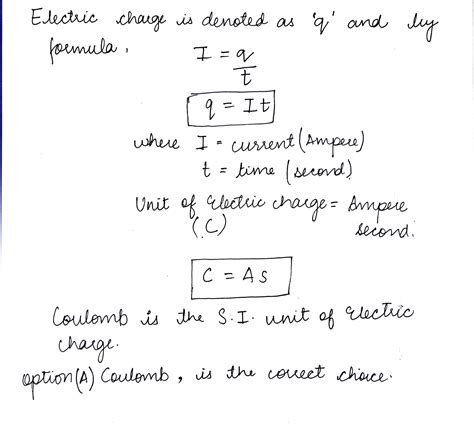 Electric charge is denoted as 'q' and by
formula,
I = q/t
q = It
where I = current (Ampere)
t = time (second)
Unit of electric charge = Ampere
(C) second.
C = As
Coulomb is the S.I. unit of electric
charge.
option (A) Coulomb, is the correct choice.